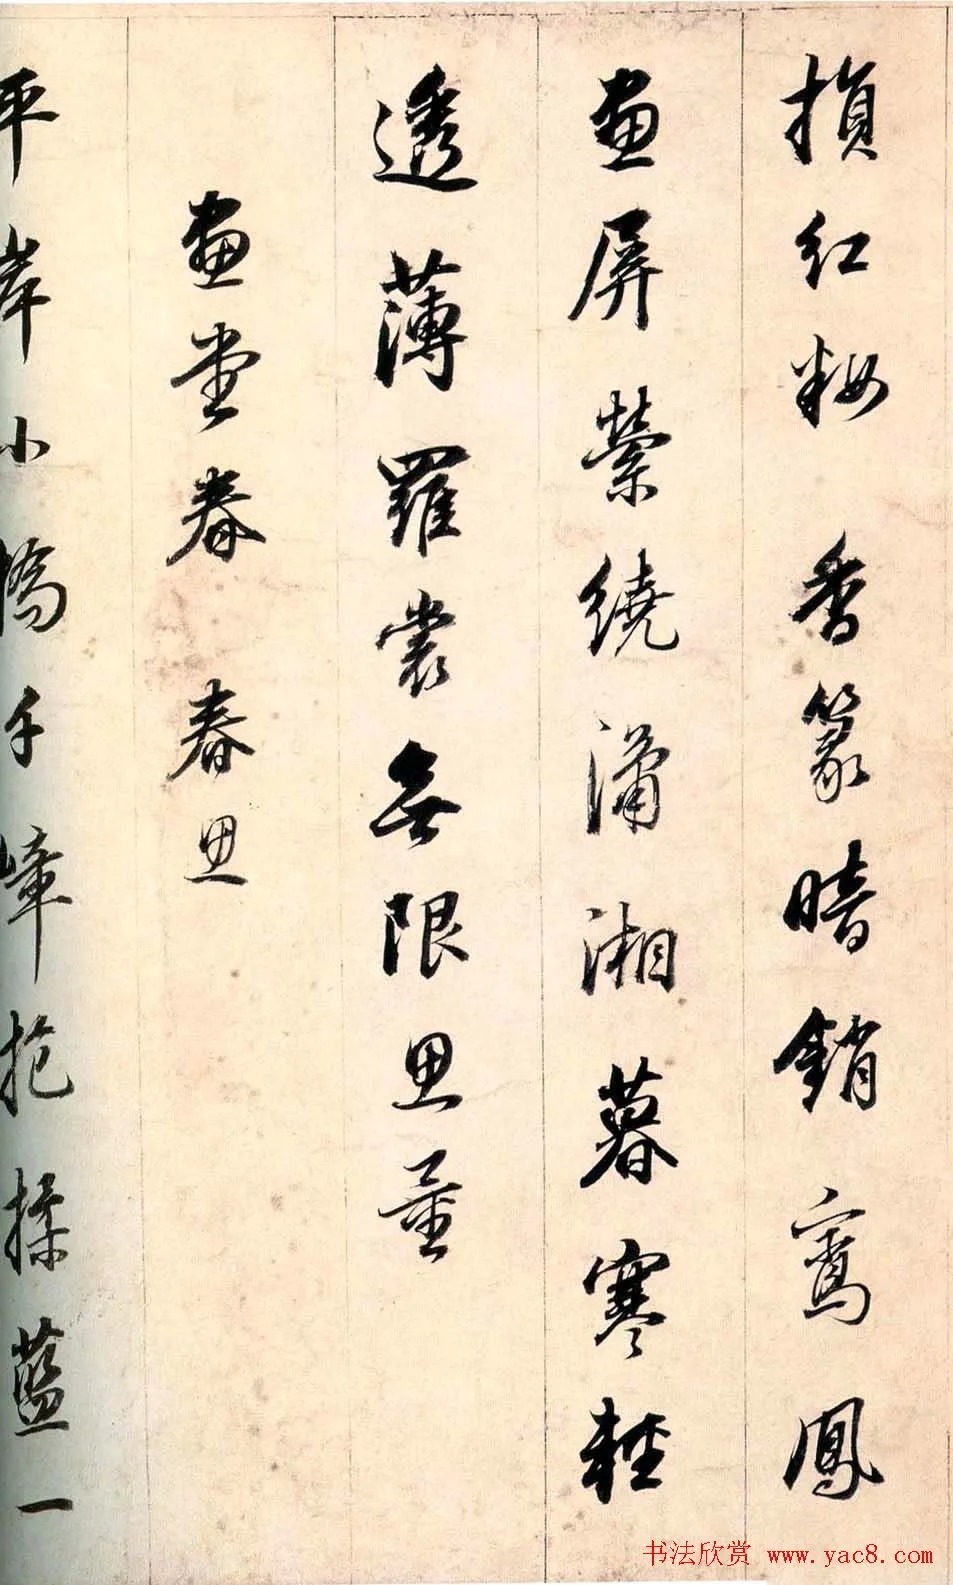 損紅妝 香篆暗銷鸞鳳
畫屏縈繞瀟湘暮寒輕
透薄羅裳無限思量
畫堂春 春思
平岸小橋千嶂抱揉藍一
书法欣赏 www.yac8.com